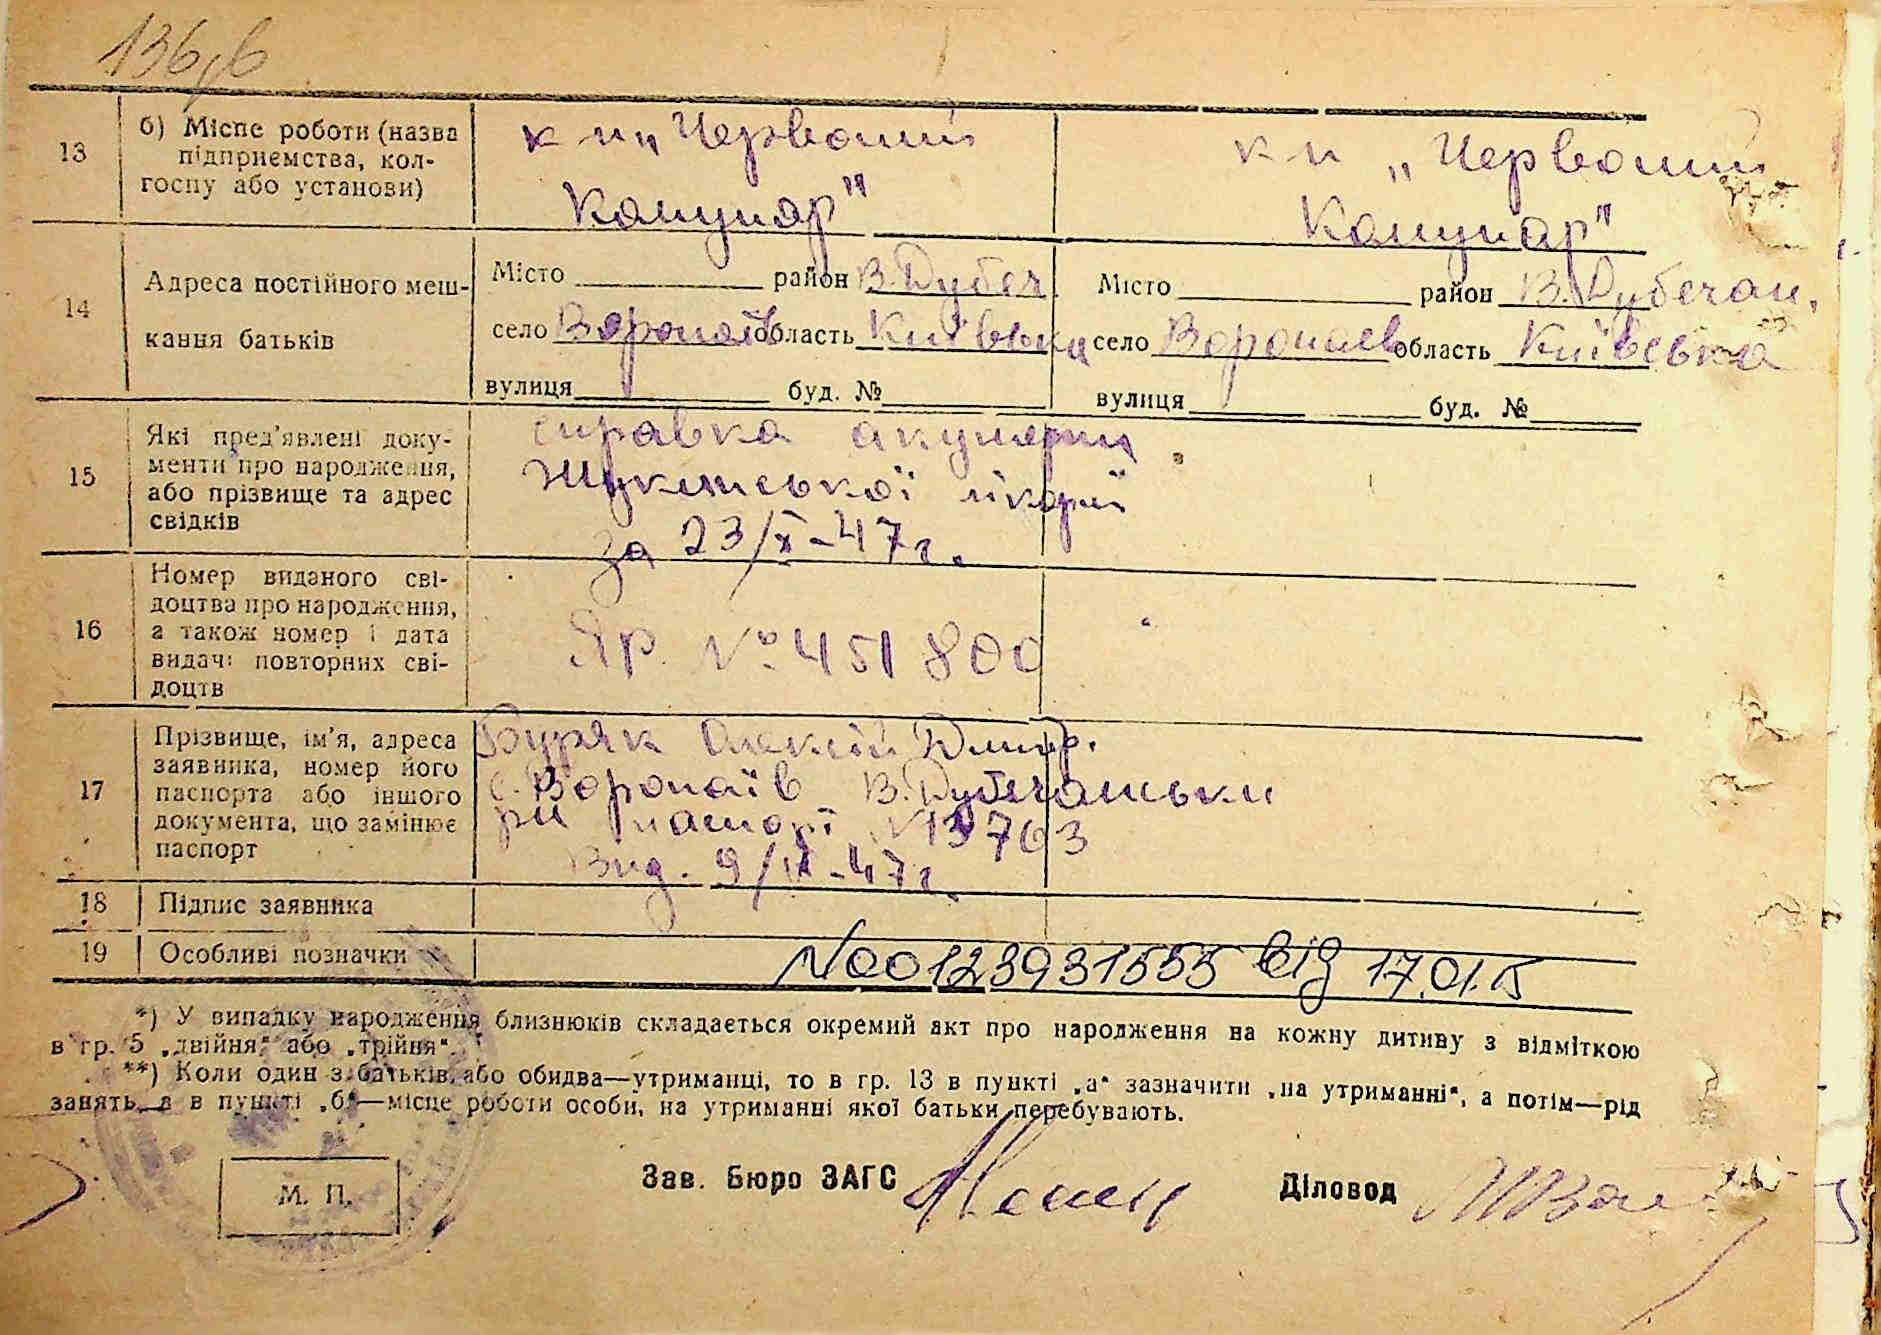 136,б
13
б) Місце роботи (назва
підприємства, кол-
госпу або установи)
к п „Червоний
Комунар"
к п „Червоний
Комунар"
14
Адреса постійного меш-
кання батьків
Місто район В.Дубеч.
село Воропаїв область Київська
вулиця буд. №
Місто район В.Дубечан.
село Воропаєв область Київська
вулиця буд. №
15
Які пред'явлені доку-
менти про народження,
або прізвище та адрес
свідків
справка акушерки
Жукинської лікарні
за 23/X-47г.
16
Номер виданого сві-
доцтва про народження,
а також номер і дата
видачі повторних сві-
доцтв
ЯР. № 451800
17
Прізвище, ім'я, адреса
заявника, номер його
паспорта або іншого
документа, що замінює
паспорт
Буряк Олексій Дмитр.
с. Воропаїв В.Дубечанськи
рн паспорт № 13763
Вид. 9/IX-47г.
18
Підпис заявника
19
Особливі позначки
N00123931555 від 17.01.15
*) У випадку народження близнюків складається окремий акт про народження на кожну дитину з відміткою
в гр. 5 „двійня" або „трійня".
**) Коли один з батьків або обидва—утриманці, то в гр. 13 в пункті „а" зазначити „на утриманні", а потім—рід
занять, а в пункті „б"—місце роботи особи, на утриманні якої батьки перебувають.
М. П.
Зав. Бюро ЗАГС
Діловод